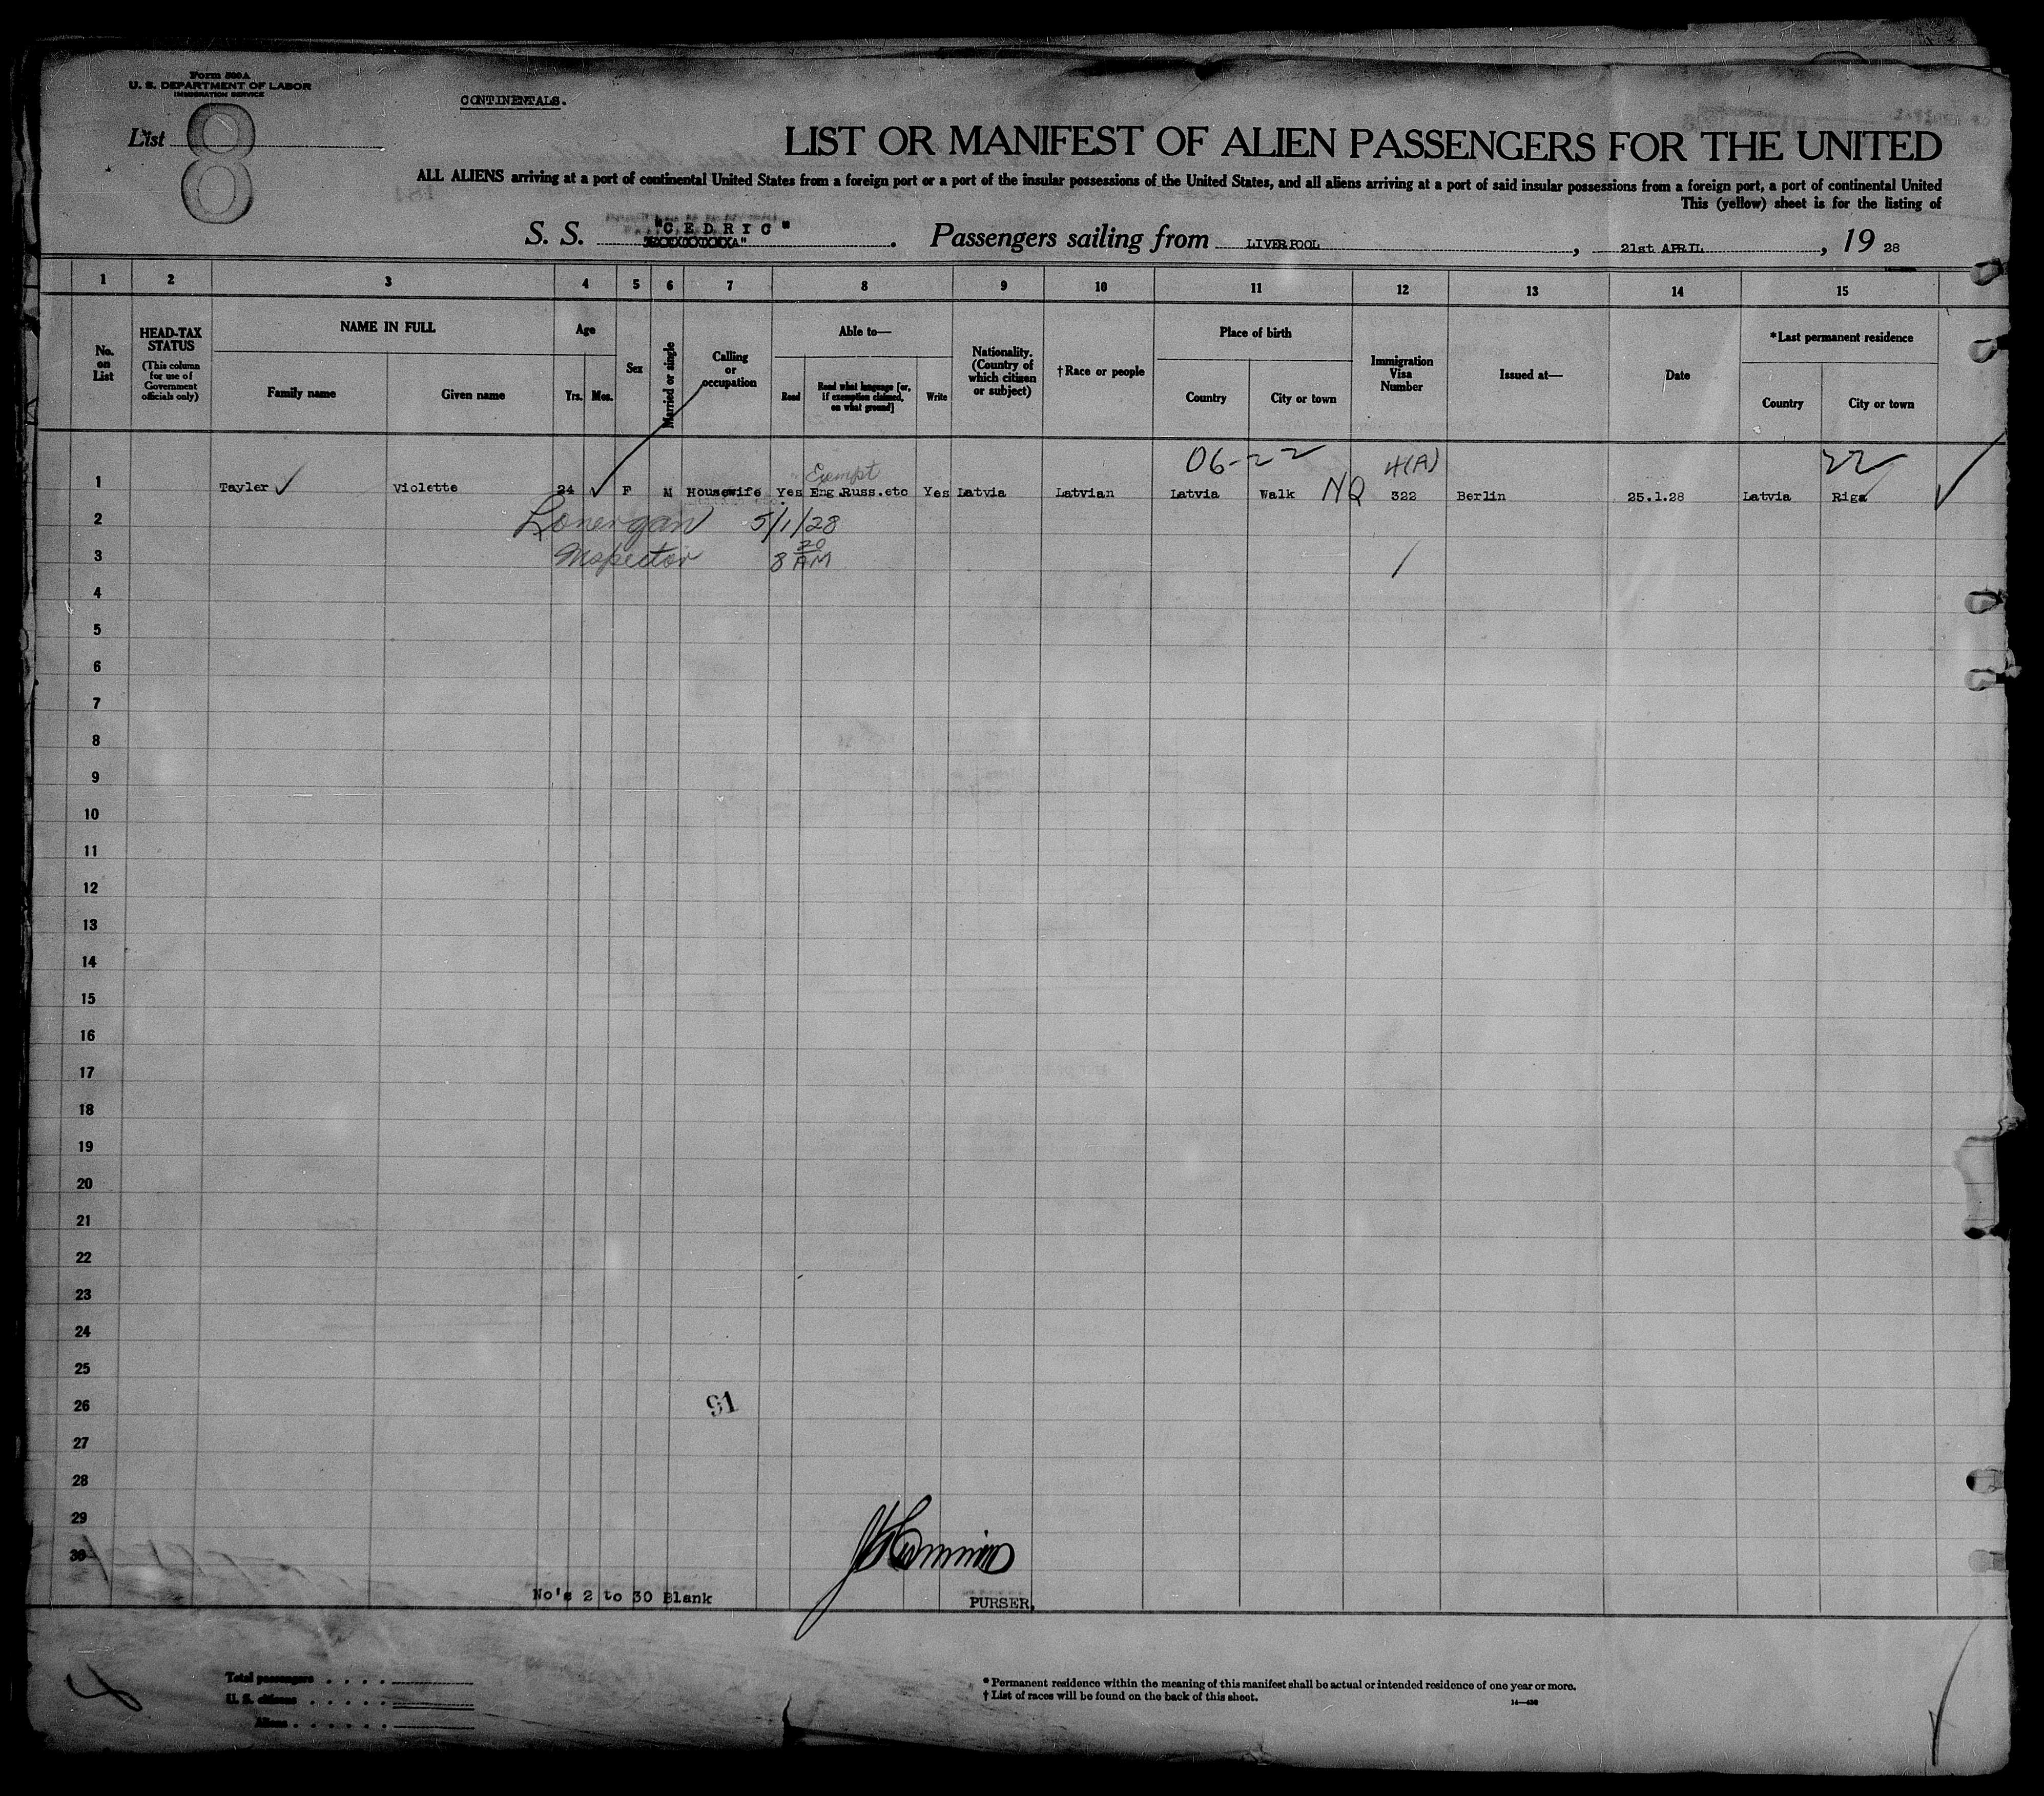 Form 500A
U. S. DEPARTMENT OF LABOR
IMMIGRATION SERVICE
CONTINENTALS.
List 8
LIST OR MANIFEST OF ALIEN PASSENGERS FOR THE UNITED
ALL ALIENS arriving at a port of continental United States from a foreign port or a port of the insular possessions of the United States, and all aliens arriving at a port of said insular possessions from a foreign port, a port of continental United
This (yellow) sheet is for the listing of
S. S. "CEDRIC". Passengers sailing from LIVERPOOL, 21st APRIL, 19 28
1 2 3 4 5 6 7 8 9 10 11 12 13 14 15
No. on List
HEAD-TAX STATUS
(This column for use of Government officials only)
NAME IN FULL
Family name Given name
Age
Yrs. Mos.
Sex
Married or single
Calling or occupation
Able to—
Read Read what language [or, if exemption claimed, on what ground] Write
Nationality. (Country of which citizen or subject)
†Race or people
Place of birth
Country City or town
Immigration Visa Number
Issued at—
Date
*Last permanent residence
Country City or town
06-22 4(A) 22
Exempt
1 Tayler Violette 24 F M Housewife Yes Eng.Russ.etc Yes Latvia Latvian Latvia Walk NQ 322 Berlin 25.1.28 Latvia Riga
2 Lonergan 5/1/28
3 Inspector 8 20 AM
4
5
6
7
8
9
10
11
12
13
14
15
16
17
18
19
20
21
22
23
24
25
26 91
27
28
29
30
No's 2 to 30 Blank
PURSER,
Total passengers
U. S. citizens
Aliens
* Permanent residence within the meaning of this manifest shall be actual or intended residence of one year or more.
† List of races will be found on the back of this sheet.